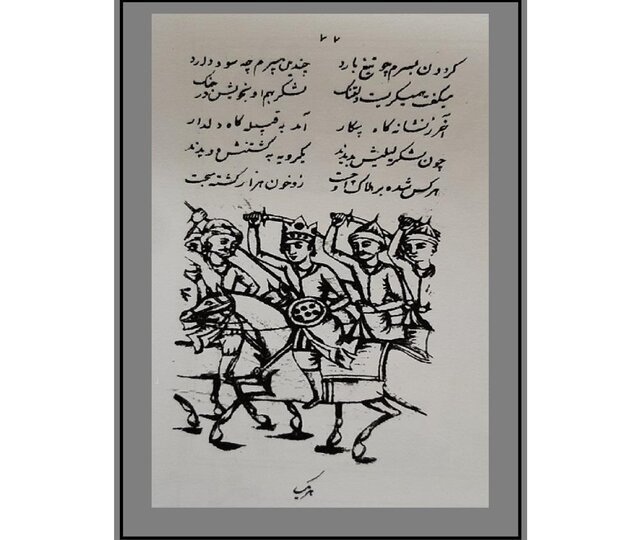 ۷۷
گردون بسرم چو تیغ بارد چندین سپرم چه سود دارد
میگفت همیگریست دلتنگ لشکر هم او بخویش در جنگ
آخر ز نشانه گاه پیکار آمد به قبیله گاه دلدار
چون لشکر لیلیش بدیدند یکرویه به کشتنش دویدند
هر کس شده بر هلاک او زو خون هزار کشته میجست